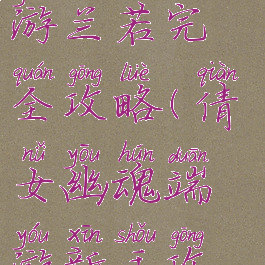 游兰若完
quán gōng lüè qiàn
全攻略(倩
nǚ yōu hún duān
女幽魂端
yóu xīn shǒu gōng
游新手攻